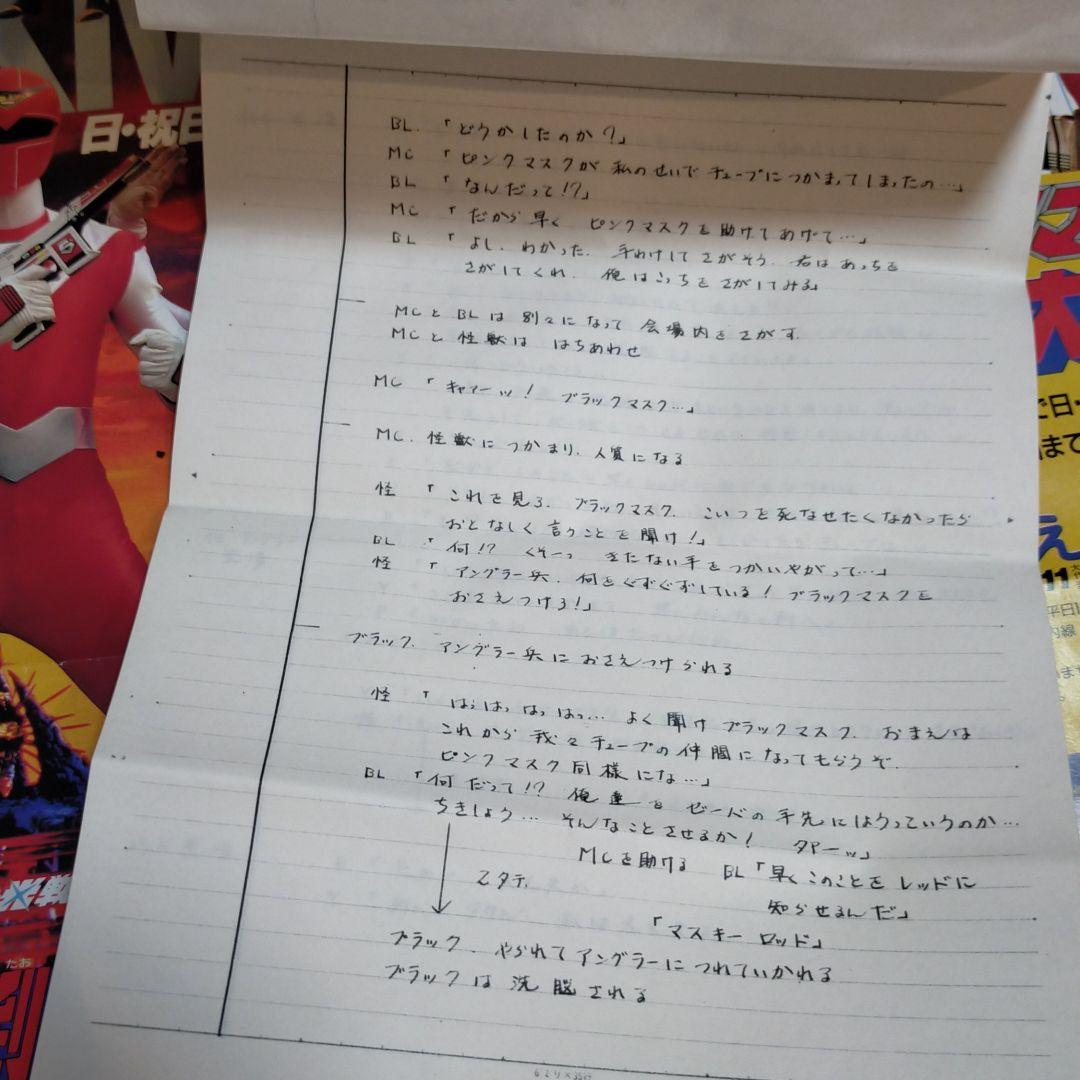 日・祝日
BL.「どうかしたのか?」
MC「ピンクマスクが 私のせいで チューブにつかまってしまったの…」
BL「なんだって!?」
MC「だから早く ピンクマスクを助けてあげて…」
BL「よし、わかった。手わけしてさがそう。君はあっちを
さがしてくれ。俺はこっちをさがしてみる」
MCとBLは別々になって会場内をさがす。
MCと怪獣は はちあわせ
MC「キャアーッ! ブラックマスク…」
MC. 怪獣につかまり、人質になる
怪「これを見ろ、ブラックマスク、こいつを死なせたくなかったら
おとなしく言うことを聞け!」
BL「何!? くそーっ きたない手をつかいやがって…」
怪「アングラー兵、何をぐずぐずしている! ブラックマスクを
おさえつけろ!」
ブラック、アングラー兵におさえつけられる
怪「はっはっはっはっ… よく聞けブラックマスク、おまえは
これから我々チューブの仲間になってもらうぞ。
ピンクマスク同様にな…」
BL「何だって!? 俺達を ゼーバの手先に
ちきしょう… そんなことさせるか! タアーッ」
MCを助ける BL「早くこのことをレッドに
知らせるんだ」
タテ.
「マスキーロッド」
ブラック、やられてアングラーにつれていかれる
ブラックは洗脳される
え
11
平日
内線
たお